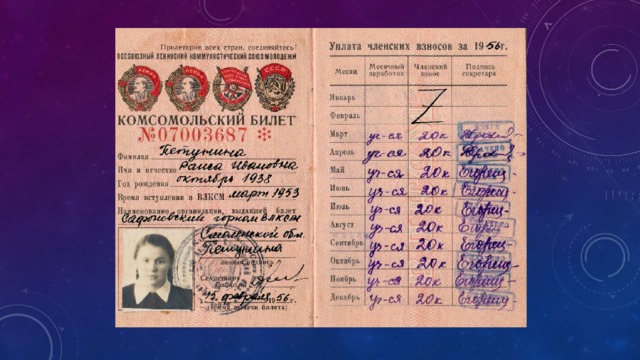 Пролетарии всех стран, соединяйтесь!
ВСЕСОЮЗНЫЙ ЛЕНИНСКИЙ КОММУНИСТИЧЕСКИЙ СОЮЗ МОЛОДЕЖИ
КОМСОМОЛЬСКИЙ БИЛЕТ
№07003687
Фамилия Петунина
Имя и отчество Раиса Ивановна
Год рождения октябрь 1938
Время вступления в ВЛКСМ март 1953
Наименование организации, выдавшей билет
горком влксм
Смоленской обл.
Петунина
личная подпись
Секретарь
Райкома
13 февраля 1956 г.
(время выдачи билета)
Уплата членских взносов за 1956 г.
Месяцы Месячный заработок Членский взнос Подпись секретаря
Январь
Февраль
Март уч-ся 20к
Апрель уч-ся 20к
Май уч-ся 20к
Июнь уч-ся 20к
Июль уч-ся 20к
Август уч-ся 20к
Сентябрь уч-ся 20к
Октябрь уч-ся 20к
Ноябрь уч-ся 20к
Декабрь уч-ся 20к